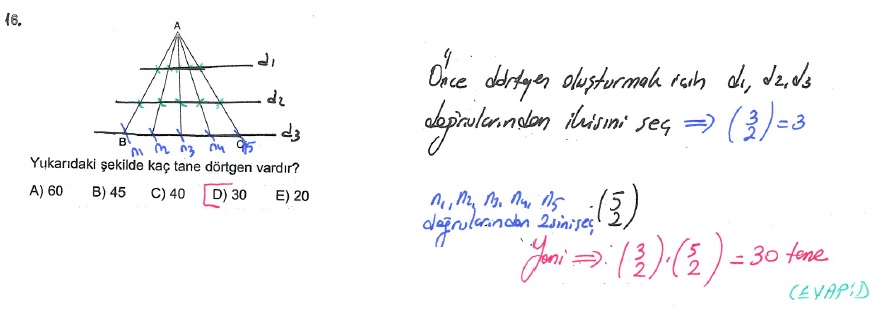 16.
A
d1
d2
d3
B
C
n1 n2 n3 n4 n5
Yukarıdaki şekilde kaç tane dörtgen vardır?
A) 60 B) 45 C) 40 D) 30 E) 20
Önce dörtgen oluşturmak için d1, d2, d3
doğrularından ikisini seç ⇒ (3 2) = 3
n1, n2, n3, n4, n5
doğrularından 2sini seç · (5 2)
Yani ⇒ (3 2) · (5 2) = 30 tane
CEVAP:D